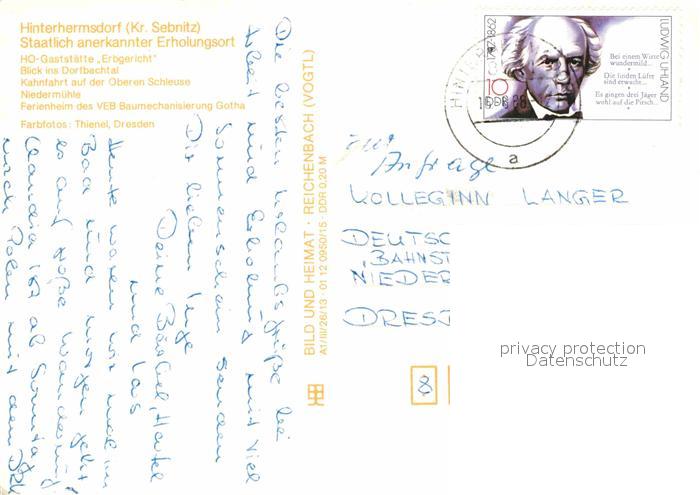 Hinterhermsdorf (Kr. Sebnitz)
Staatlich anerkannter Erholungsort
HO-Gaststätte „Erbgericht"
Blick ins Dorfbachtal
Kahnfahrt auf der Oberen Schleuse
Niedermühle
Ferienheim des VEB Baumechanisierung Gotha
Farbfotos: Thienel, Dresden
Die besten Urlaubsgrüße bei
und Erholung mit viel
Sonnenschein senden
Dir lieben Inge
Deine Bärbel,
und
Heute waren wir mal im
Bad und morgen geht
es auf große Wanderung.
Claudia ist ab
nach Polen mit dem
BILD UND HEIMAT · REICHENBACH (VOGTL)
A1/III/26/13 · 01 12 0950/15 · DDR 0,20 M
Bei einem Wirte
wundermild...
Die linden Lüfte
sind erwacht...
Es gingen drei Jäger
wohl auf die Pirsch...
LUDWIG UHLAND
1787-1862
10
DDR
a
zur
Anfrage
KOLLEGINN LANGER
DEUTSC
BAHNST
NIEDER
DRES
8
privacy protection
Datenschutz